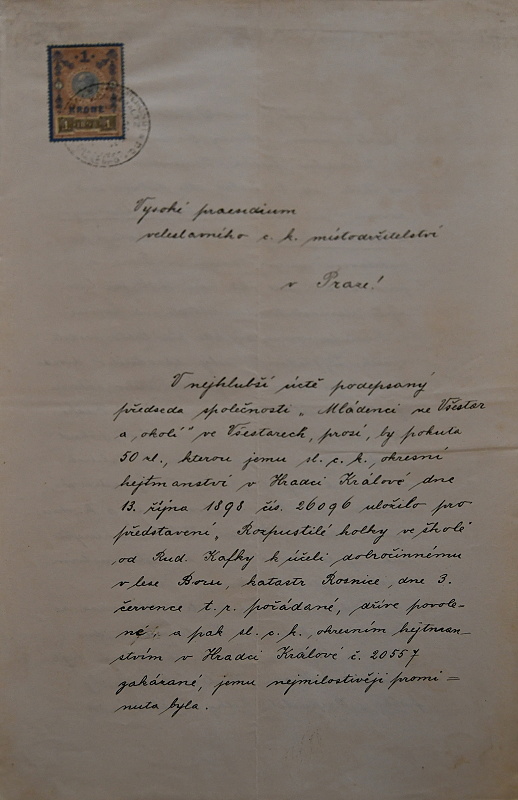 1
KRONE
1 1
Vysoké praesidium
veleslavného c. k. místodržitelství
v Praze!
V nejhlubší úctě podepsaný
předseda společnosti „Mládenci ve Všestar
a okolí" ve Všestarech, prosí, by pokuta
50 zl., kterou jemu sl. c. k. okresní
hejtmanství v Hradci Králové dne
13. října 1898 čís. 26096 uložilo pro
představení „Rozpustilé holky ve škole
od Rud. Kafky k účeli dobročinnému
v lese Boru, katastr Rosnice, dne 3.
července t. r. pořádané, dříve povole-
né, a pak sl. c. k. okresním hejtman-
stvím v Hradci Králové č. 20557
zakázané, jemu nejmilostivěji promi=
nuta byla.